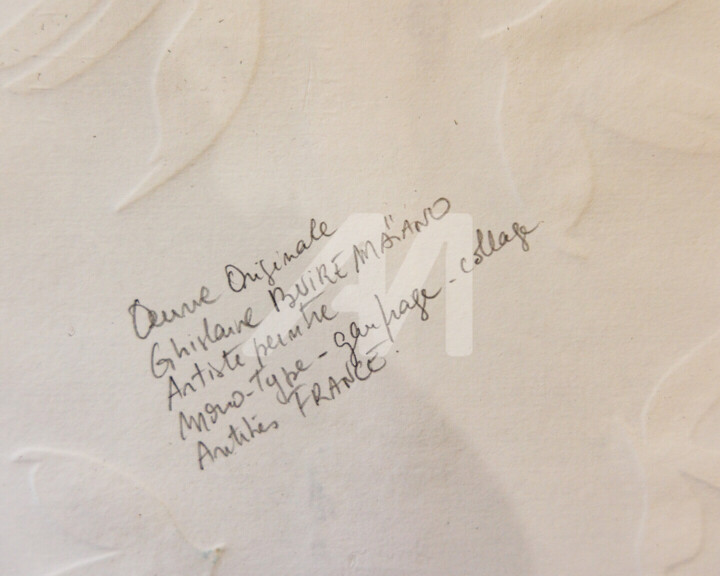 Œuvre Originale
Ghislaine BUIRE MAÏANO
Artiste peintre
Mono-Type-gaufrage-collage
Antibes FRANCE.
AN